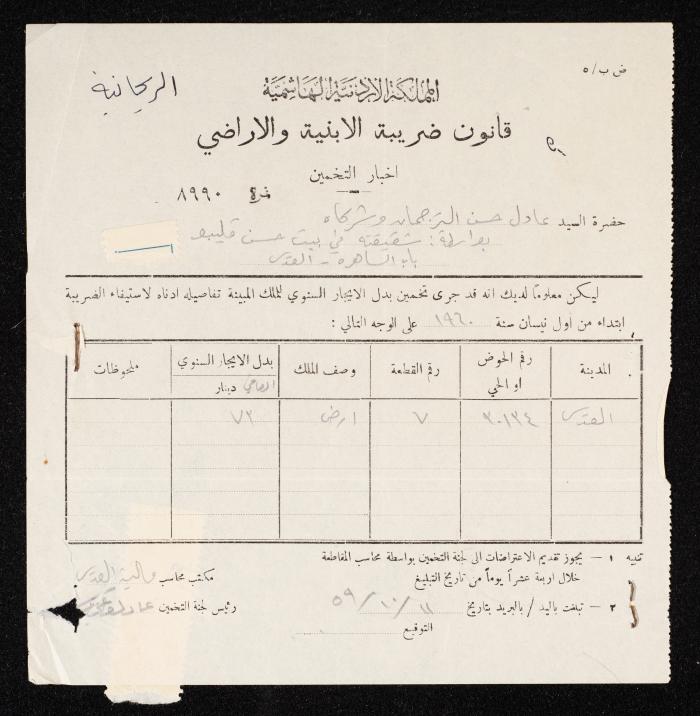 ض ب/٥
الريحانية
المملكة الاردنية الهاشمية
قانون ضريبة الابنية والاراضي
اخبار التخمين
نمرة ٨٩٩٠
حضرة السيد عادل حسن الترجمان وشركاه
بواسطة: شقيقته في بيت حسن قليبو
باب الساهرة - القدس
ليكن معلوماً لديك انه قد جرى تخمين بدل الايجار السنوي للملك المبينة تفاصيله ادناه لاستيفاء الضريبة
ابتداء من اول نيسان سنة ١٩٦٠ على الوجه التالي :
المدينة
رقم الحوض او الحي
رقم القطعة
وصف الملك
بدل الايجار السنوي
الصافي دينار
ملحوظات
القدس
٣٠١٣٤
٧
ارض
٧٢
تنبيه ١ — يجوز تقديم الاعتراضات الى لجنة التخمين بواسطة محاسب المقاطعة
خلال اربعة عشر يوماً من تاريخ التبليغ
مكتب محاسب مالية القدس
٢ — تبلغت باليد / بالبريد بتاريخ ١١/١٠/٥٩
رئيس لجنة التخمين
التوقيع